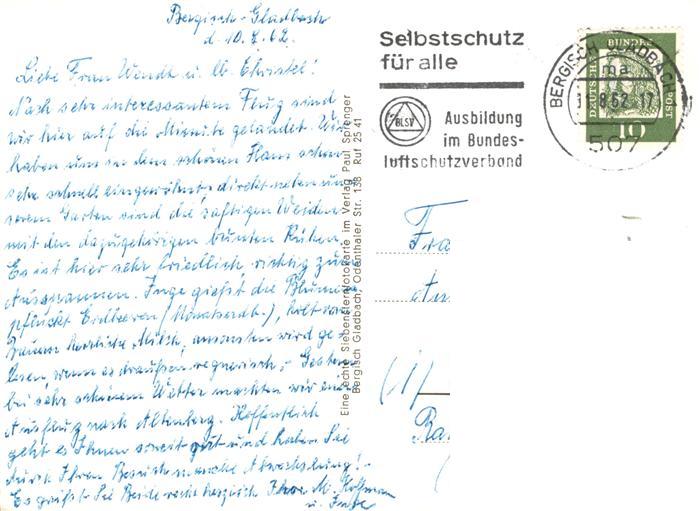 Bergisch-Gladbach
d. 10.8.62.
Liebe Frau Wendt u. lb. Christel!
Nach sehr interessantem Flug sind
wir hier auf die Minute gelandet. Wir
haben uns in dem schönen Haus schon
sehr schnell eingewöhnt, direkt neben un-
serem Garten sind die saftigen Weiden
mit den dazugehörigen bunten Kühen.
Es ist hier sehr friedlich, richtig zum
Ausspannen. Inge gießt die Blumen,
pflückt Erdbeeren (Monatserdb.), holt vom
Bauern herrliche Milch, ansonsten wird ge-
lesen, wenn es draußen regnerisch. - Gestern
bei sehr schönem Wetter machten wir ein
Ausflug nach Altenberg. Hoffentlich
geht es Ihnen soweit gut und haben Sie
durch Ihren Besuch manche Abwechslung! -
Es grüßt Sie Beide recht herzlich Ihre M.
u. Inge
Eine echte Siebensternfotokarte im Verlag Paul Sprenger
Bergisch Gladbach, Odenthaler Str. 138 Ruf 25 41
Selbstschutz
für alle
BLSV
Ausbildung
im Bundes-
luftschutzverband
BERGISCH GLADBACH
ma
8.62.17
507
DEUTSCHE BUNDESPOST
10
Fra
(1)